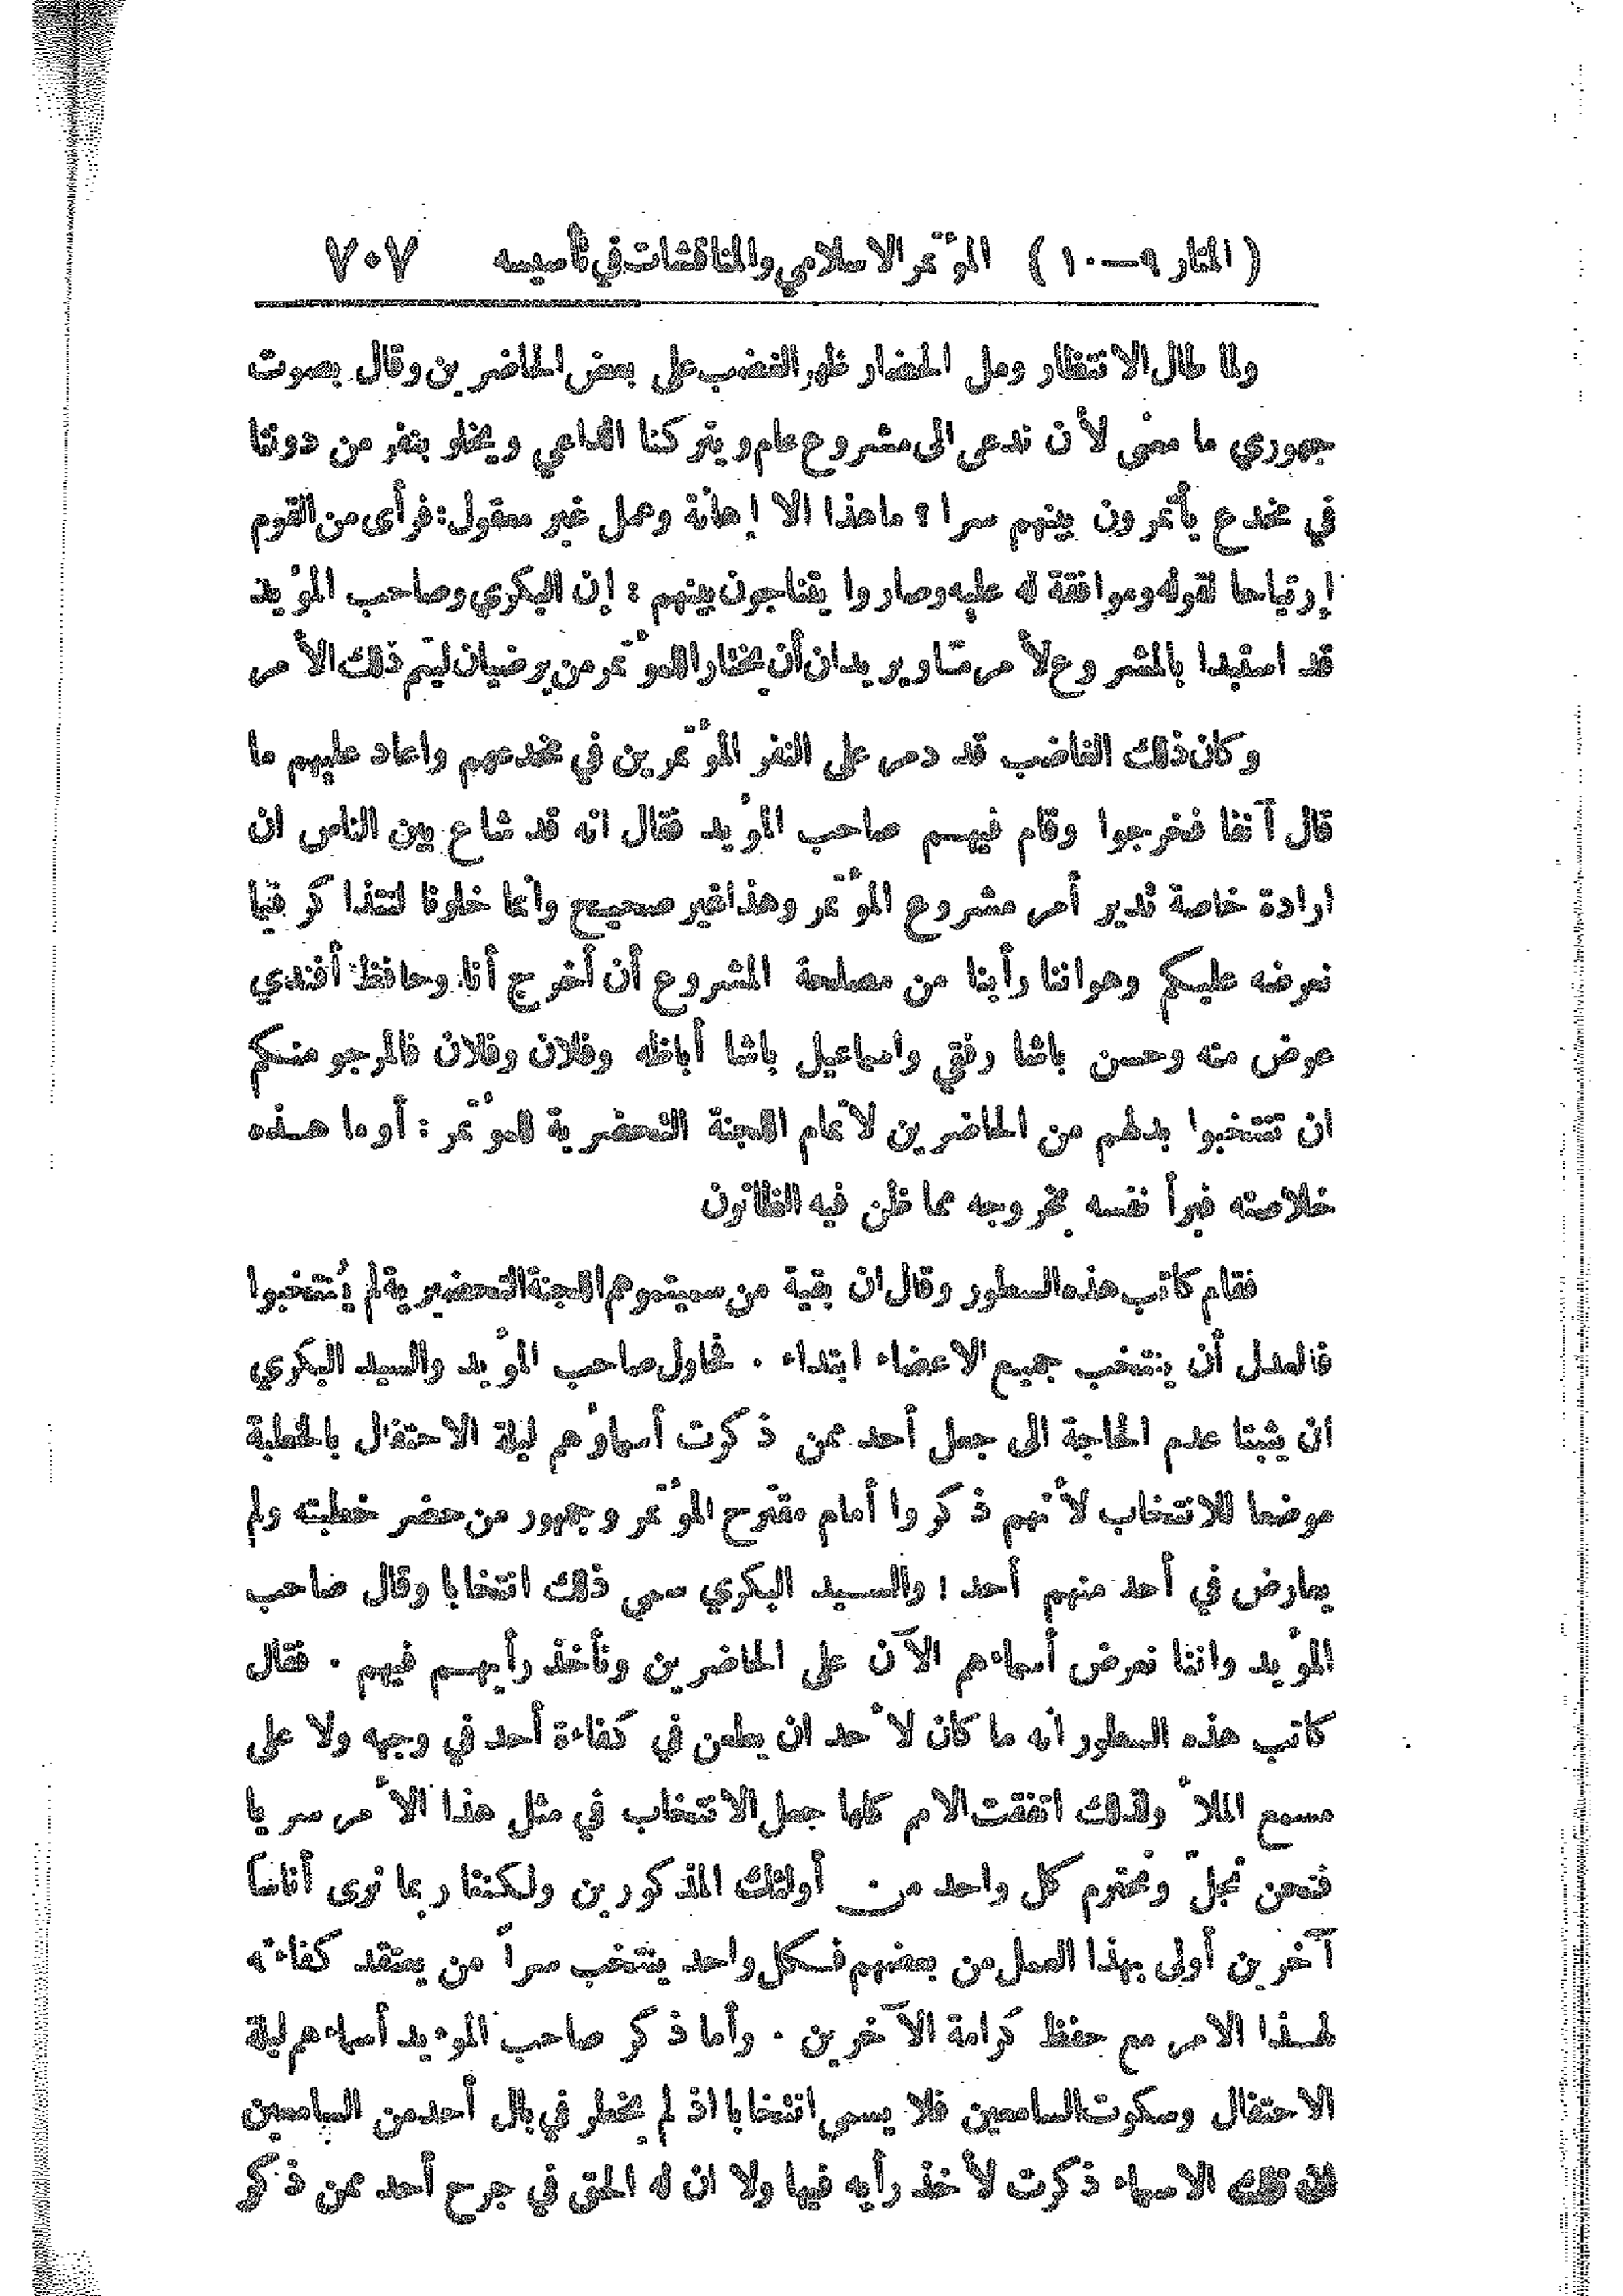 ( المنار ٩ — ١٠ ) المؤتمر الاسلامي والمناقشات في تأسيسه ٧٠٧
ولما طال الانتظار ومل الحضار ظهر الغضب على بعض الحاضرين وقال بصوت
جهوري ما معنى لأن ندعى الى مشروع عام ويتركنا الداعي ويخلو بنفر من دوننا
في مخدع يأتمرون بينهم سرا ؟ ما هذا الا إهانة وعمل غير معقول : فرأى من القوم
إرتياحا لقوله وموافقة له عليه وصاروا يتناجون بينهم : إن البكري وصاحب المؤيد
قد استبدا بالمشروع لأمر مّا ويريدان أن يختارا للمؤتمر من يرضيان ليتم ذلك الأمر
وكان ذلك الغاضب قد دمر على النفر المؤتمرين في مخدعهم واعاد عليهم ما
قال آنفا فخرجوا وقام فيهم صاحب المؤيد فقال انه قد شاع بين الناس ان
ارادة خاصة تدير أمر مشروع المؤتمر وهذا غير صحيح وانما خلونا لنتذاكر فيما
نعرضه عليكم وهو اننا رأينا من مصلحة المشروع أن أخرج أنا وحافظ أفندي
عوض منه وحسن باشا رفقي واسماعيل باشا أباظه وفلان وفلان فالمرجو منكم
ان تنتخبوا بدلهم من الحاضرين لاتمام اللجنة التحضرية للمؤتمر : أو ما هذه
خلاصته فبرأ نفسه بخروجه مما ظن فيه الظانون
فقام كاتب هذه السطور وقال ان بقية من سميتموهم اللجنة التحضيرية لم يُنتخبوا
فالعدل أن ينتخب جميع الاعضاء ابتداء . فحاول صاحب المؤيد والسيد البكري
ان يثبتا عدم الحاجة الى جعل أحد ممن ذكرت أسماؤهم ليلة الاحتفال بالخطبة
موضعا للانتخاب لأنهم ذكروا أمام مقترح المؤتمر وجمهور من حضر خطبته ولم
يعارض في أحد منهم أحد ؛ والسيد البكري سمى ذلك انتخابا وقال صاحب
المؤيد واننا نعرض أسماءهم الآن على الحاضرين ونأخذ رأيهم فيهم . فقال
كاتب هذه السطور انه ما كان لأحد ان يطعن في كفاءة أحد في وجهه ولا على
مسمع الملأ ولذلك اتفقت الامم كلها جعل الانتخاب في مثل هذا الأمر سريا
فنحن نجلّ ونحترم كل واحد من أولئك المذكورين ولكننا ربما نرى أناسًا
آخرين أولى بهذا العمل من بعضهم فكل واحد ينتخب سراً من يعتقد كفاءته
لهذا الامر مع حفظ كرامة الآخرين . وأما ذكر صاحب المؤيد أسماءهم ليلة
الاحتفال وسكوت السامعين فلا يسمى انتخابا اذ لم يخطر في بال أحد من السامعين
ان تلك الاسماء ذكرت لأخذ رأيه فيها ولا ان له الحق في جرح أحد ممن ذكر